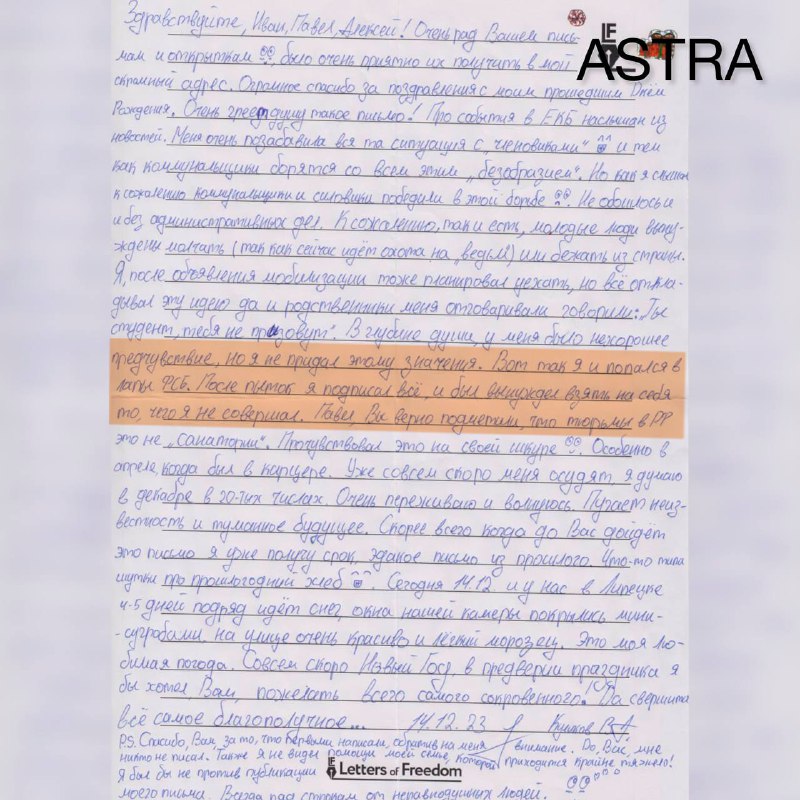 ASTRA
Здравствуйте, Иван, Павел, Алексей! Очень рад Вашем пись-
мам и открыткам, было очень приятно их получить в мой
скромный адрес. Огромное спасибо за поздравления с моим прошедшим Днём
Рождения. Очень греет душу такое письмо! Про события в ЕКБ наслышан из
новостей. Меня очень позабавила вся та ситуация с „членовиками“ и тем
как коммунальщики борятся со всем этим „безобразием“. Но как я слышал
к сожалению коммунальщики и силовики победили в этой борьбе. Не обошлось и
и без административных дел. К сожалению, так и есть, молодые люди выну-
ждены молчать (так как сейчас идёт охота на „ведьм“) или бежать из страны.
Я, после объявления мобилизации тоже планировал уехать, но всё откла-
дывал эту идею да и родственники меня отговаривали говорили: „Ты
студент, тебя не призовут“. В глубине души, у меня было нехорошее
предчувствие, но я не придал этому значения. Вот так я и попался в
лапы ФСБ. После пыток я подписал всё, и был вынужден взять на себя
то, чего я не совершал. Павел, Вы верно подметили, что тюрьмы в РФ
это не „санатории“. Прочувствовал это на своей шкуре. Особенно в
апреле, когда был в карцере. Уже совсем скоро меня осудят, я думаю
в декабре в 20-тых числах. Очень переживаю и волнуюсь. Пугает неиз-
вестность и туманное будущее. Скорее всего когда до Вас дойдёт
это письмо я уже получу срок, эдакое письмо из прошлого. Что-то типа
шутки про прошлогодний хлеб. Сегодня 14.12. и у нас в Липецке
4-5 дней подряд идёт снег, окна нашей камеры покрылись мини-
-сугробами, на улице очень красиво и лёгкий морозец. Это моя лю-
бимая погода. Совсем скоро Новый Год, в предверии праздника я
бы хотел Вам, пожелать всего самого сокровенного. Да свершится
всё самое благополучное... 14.12.23
P.S. Спасибо, Вам, за то, что первыми написали, обратив на меня внимание. До, Вас, мне
никто не писал. Также я не видел помощи моей семье, которой приходится крайне тяжело!
Я был бы не против публикации
Letters of Freedom
моего письма. Всегда рад строкам от неравнодушных людей.